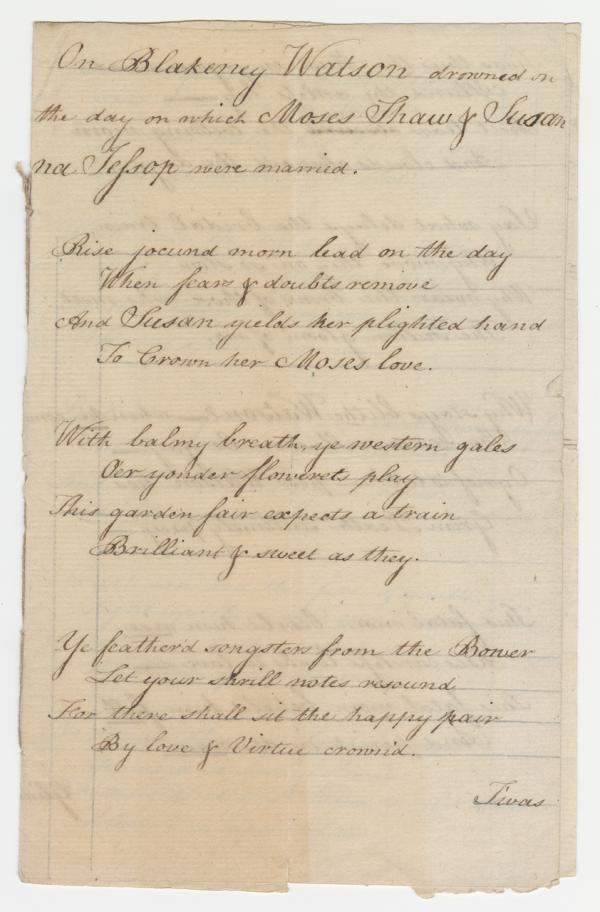 On Blakeney Watson drowned on
the day on which Moses Shaw & Susan
na Jeſsop were married.
Rise jocund morn lead on the day
When fears & doubts remove
And Susan yields her plighted hand
To Crown her Moses love.
With balmy breath, ye western gales
O'er yonder flowrets play
This garden fair expects a train
Brilliant & sweet as they.
Ye feather'd songsters from the Bower
Let your shrill notes resound
For there shall sit the happy pair
By love & Virtue crown'd.
Twas